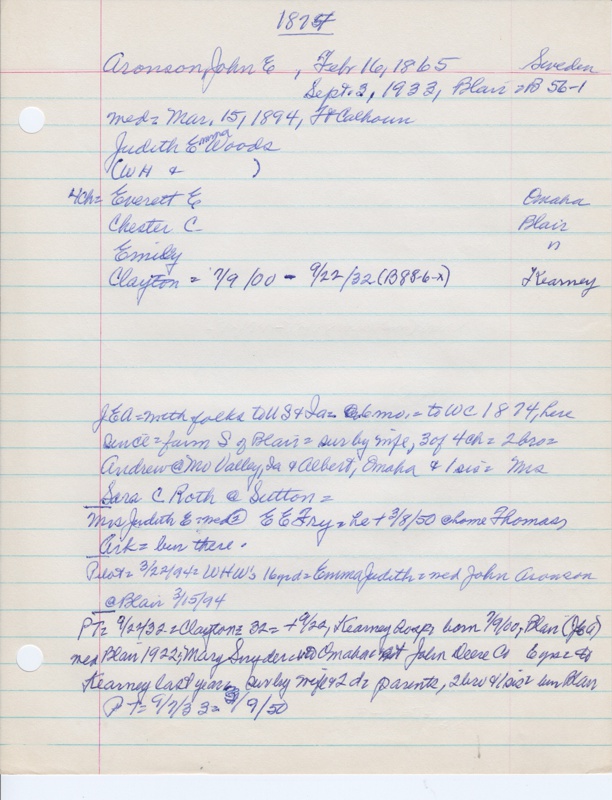 1874
Aronson, John E , Febr 16, 1865 Sweden
Sept. 3, 1933, Blair = B 56-1
med = Mar. 15, 1894, Ft Calhoun
Judith Emma Woods
(WH & )
4ch= Everett E Omaha
Chester C Blair
Emily "
Clayton = 7/9/00 - 9/22/32 (B88-6-x) Kearney
JEA = with folks to US & Ia = @ 6 mo. = to WC 1874, here
since = farm S of Blair = sur by wife, 3 of 4 ch = 2 bro =
Andrew @ Mo Valley, Ia & Albert, Omaha & 1 sis = Mrs
Sara C Roth @ Sutton =
Mrs Judith E = med ② E E Fry = he + 3/8/50 @ home Thomas,
Ark = bur there.
Pilot = 3/22/94 = WHW's 16 yrd = Emma Judith = med John Aronson
@ Blair 3/15/94
PT = 9/27/32 = Clayton = 32 = + 9/22, Kearney hosp, born 7/9/00, Blair (JEA)
med Blair 1922, Mary Snyder = Omaha = John Deere Co 6 yrs = to
Kearney last year = sur by wife & 2 d = parents, 2 bro & 1 sis = bur Blair
PT = 9/7/33 = 3/9/50